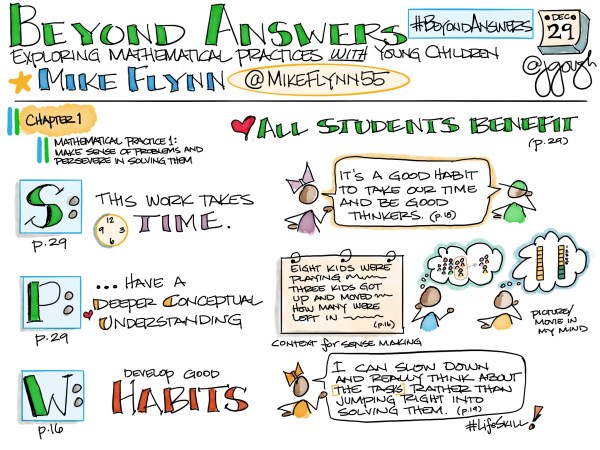 BEYOND ANSWERS
#BEYONDANSWERS
DEC
29
EXPLORING MATHEMATICAL PRACTICES WITH YOUNG CHILDREN
MIKE FLYNN @MIKEFLYNN55
@jgough
CHAPTER 1
MATHEMATICAL PRACTICE 1:
MAKE SENSE OF PROBLEMS AND
PERSEVERE IN SOLVING THEM
ALL STUDENTS BENEFIT
(p. 29)
S:
p.29
THIS WORK TAKES
TIME.
12
9 3
6
IT'S A GOOD HABIT
TO TAKE OUR TIME
AND BE GOOD
THINKERS. (p.15)
P:
p.29
... HAVE A
DEEPER CONCEPTUAL
UNDERSTANDING
EIGHT KIDS WERE
PLAYING
THREE KIDS GOT
UP AND MOVED
HOW MANY WERE
LEFT IN
(p.16)
CONTEXT for SENSE MAKING
PICTURE/
MOVIE IN
MY MIND
W:
p.16
DEVELOP GOOD
HABITS
I CAN SLOW DOWN
AND REALLY THINK ABOUT
THE TASK RATHER THAN
JUMPING RIGHT INTO
SOLVING THEM. (p.19)
#LifeSKILL!